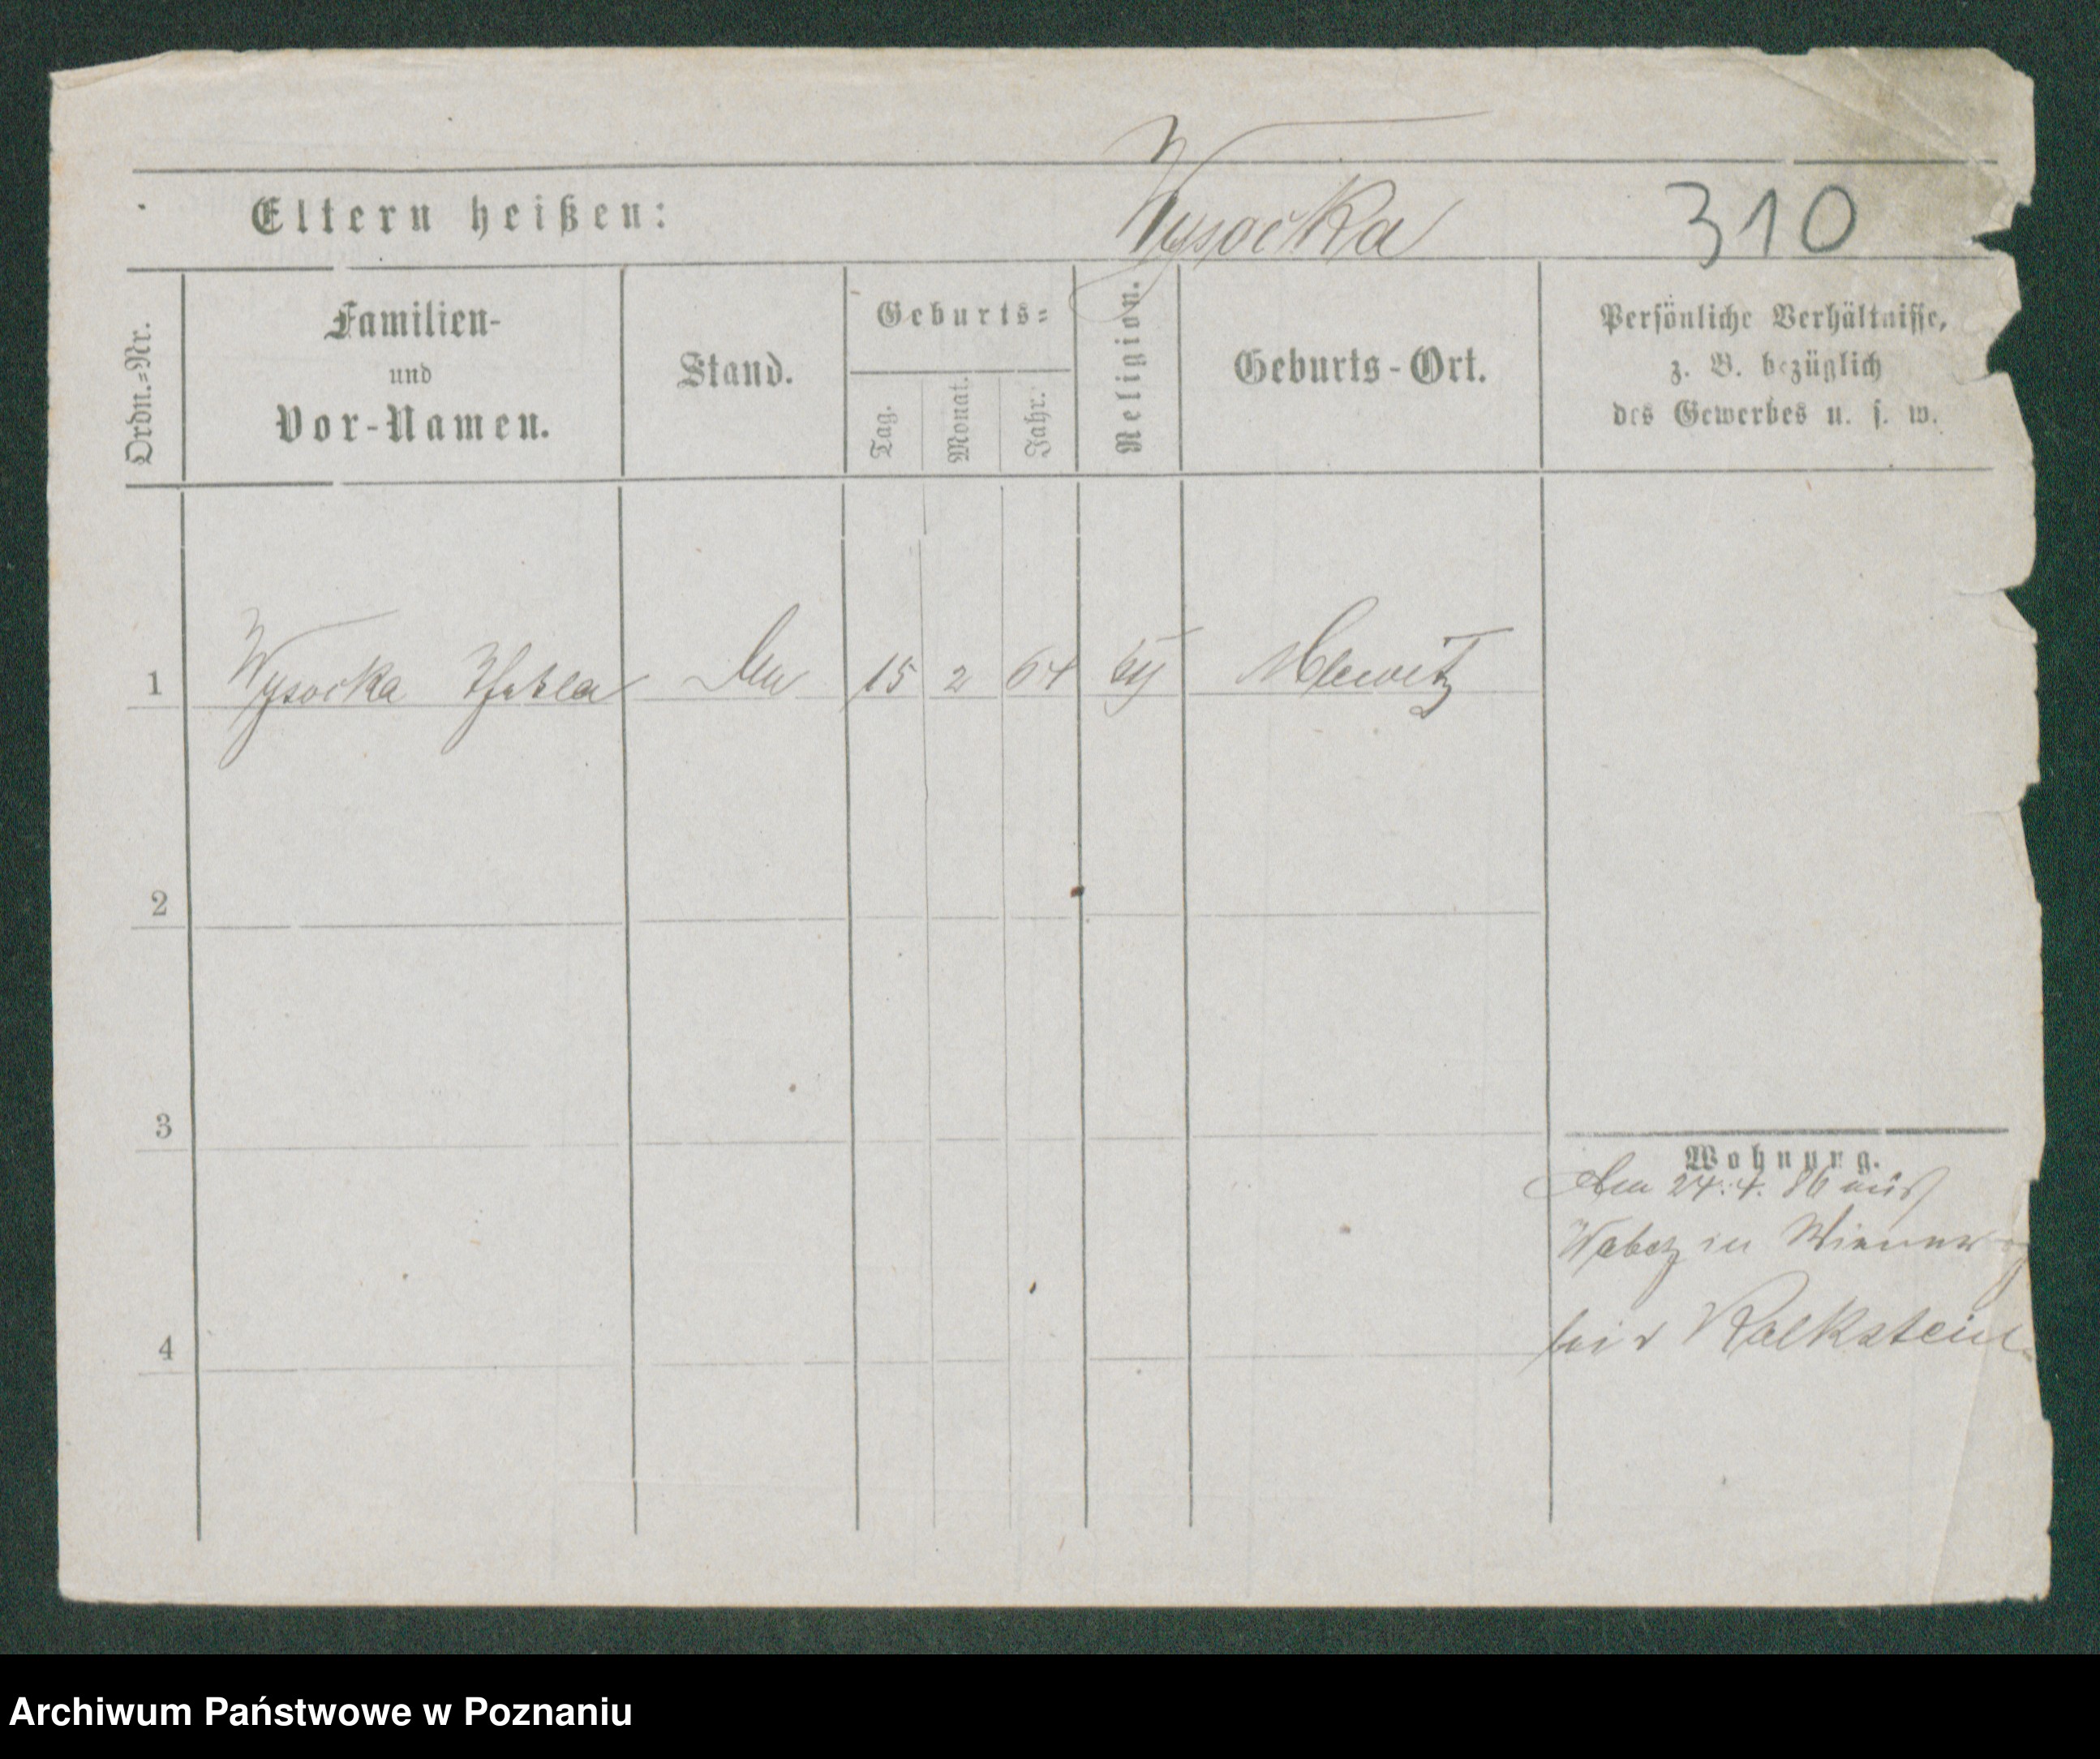 Wysocka
Eltern heißen: 310
Ordn.=Nr.
Familien-
und
Vor-Namen.
Stand.
Geburts=
Tag.
Monat.
Jahr.
Religion.
Geburts-Ort.
Persönliche Verhältnisse,
z. B. bezüglich
des Gewerbes u. s. w.
1 Wysocka 15 2 64
2
3
4
Wohnung.
24. 4. 86 aus
in
bei Kalkstein
Archiwum Państwowe w Poznaniu